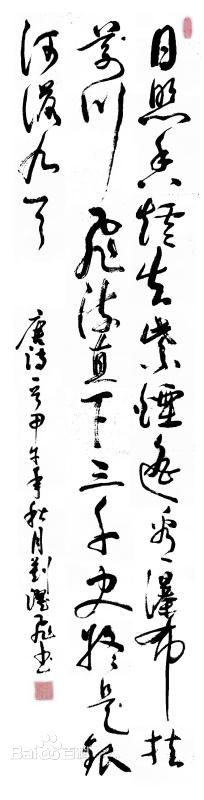 日照香爐生紫煙遙看瀑布挂
前川飛流直下三千尺疑是銀
河落九天
唐詩一首甲午年秋月劉飛书
Baidu百科